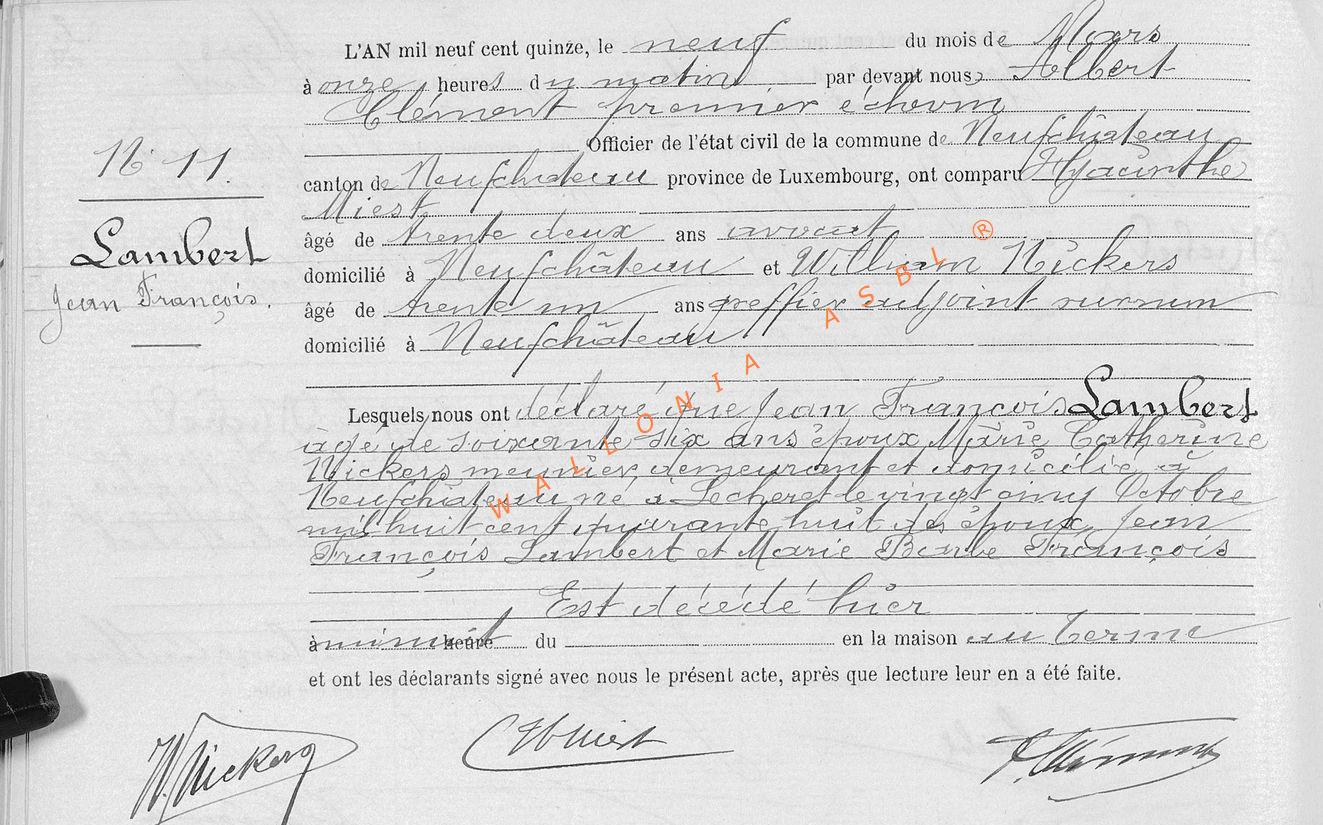 L'AN mil neuf cent quinze, le neuf du mois de Mars
à onze heures du matin par devant nous, Albert
Clément premier échevin
Officier de l'état civil de la commune de Neufchâteau
N° 11.
canton de Neufchateau province de Luxembourg, ont comparu Hyacinthe
Miest
Lambert
Jean François.
âgé de trente deux ans avocat
domicilié à Neufchâteau et William Nickers
âgé de trente un ans greffier adjoint surnum
domicilié à Neufchâteau
Lesquels nous ont déclaré que Jean François Lambert
âgé de soixante six ans époux Marie Catherine
Nickers meunier demeurant et domicilié à
Neufchâteau né à Lecheret le vingt cinq Octobre
mil huit cent quarante huit des époux Jean
François Lambert et Marie Barbe François
Est décédé hier
à minuit heure du en la maison au Terme
et ont les déclarants signé avec nous le présent acte, après que lecture leur en a été faite.
W. Nickers HMiest A. Clément
WALLONIA ASBL ®